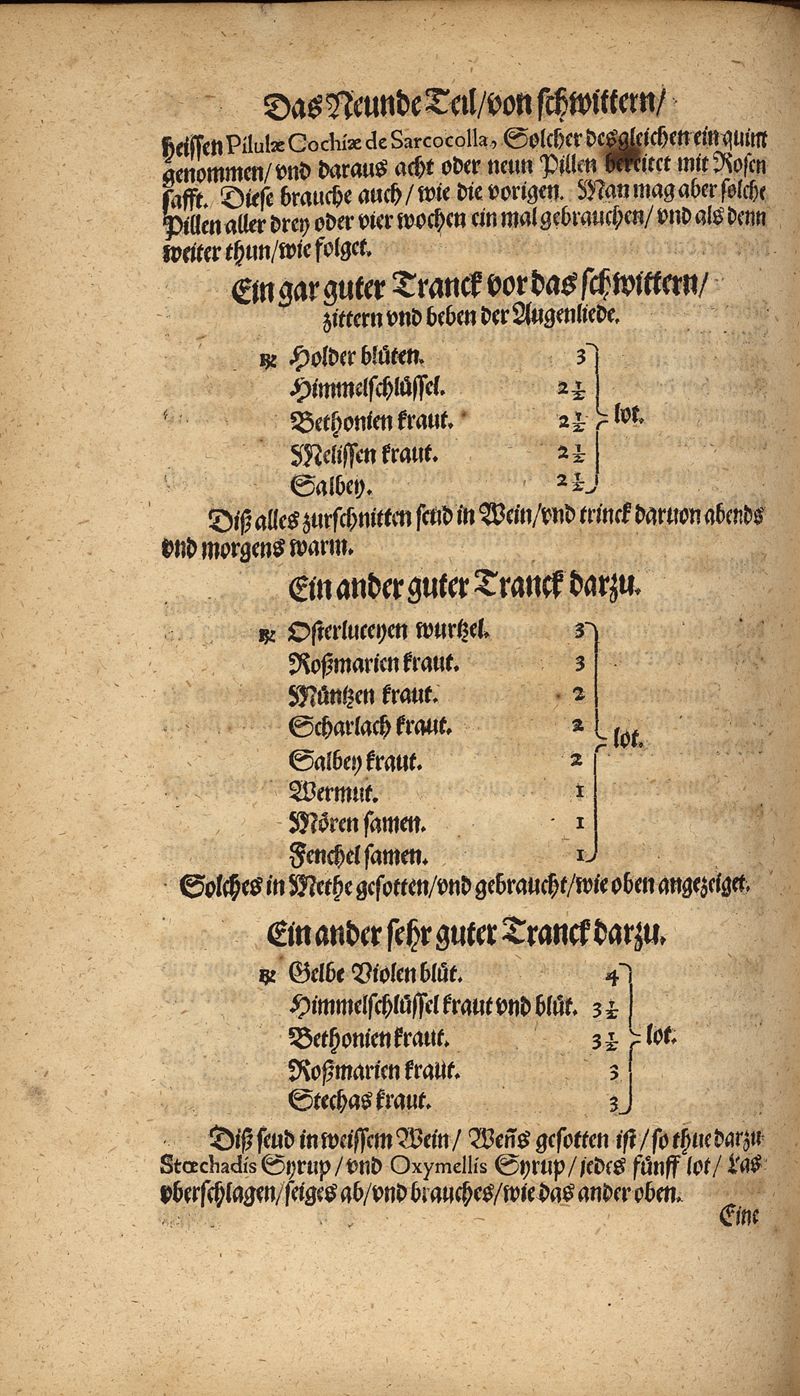 Das Neunde Teil/von schwittern/
heissen Pilulæ Cochiæ de Sarcocolla, Solcher desgleichen ein quint
genommen/vnd daraus acht oder neun Pillen bereitet mit Rosen
safft. Diese brauche auch/wie die vorigen. Man mag aber solche
Pillen aller drey oder vier wochen ein mal gebrauchen/vnd als denn
weiter thun/wie folget.
Ein gar guter Tranck vor das schwittern/
zittern vnd beben der Augenliede.
℞ Holder blüten. 3
Himmelschlüssel. 2½
Bethonien kraut. 2½ lot.
Melissen kraut. 2½
Salbey. 2½
Diß alles zurschnitten seud in Wein/vnd trinck daruon abends
vnd morgens warm.
Ein ander guter Tranck darzu.
℞ Osterluceyen wurtzel. 3
Roßmarien kraut. 3
Müntzen kraut. 2
Scharlach kraut. 2 lot.
Salbey kraut. 2
Wermut. 1
Mören samen. 1
Fenchel samen. 1
Solches in Methe gesotten/vnd gebraucht/wie oben angezeiget.
Ein ander sehr guter Tranck darzu.
℞ Gelbe Violen blüt. 4
Himmelschlüssel kraut vnd blüt. 3½
Bethonien kraut. 3½ lot.
Roßmarien kraut. 3
Stechas kraut. 3
Diß seud in weissem Wein/ Weñs gesotten ist/so thue darzu
Stœchadis Syrup/vnd Oxymellis Syrup/jedes fünff lot/ Las
vberschlagen/seiges ab/vnd brauches/wie das ander oben.
Eine